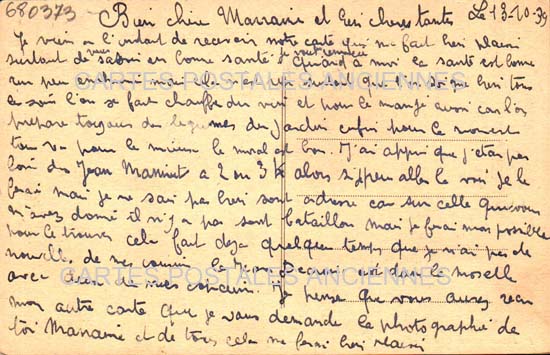 680373
Bien chère Marraine et bien chères tantes Le 13-10-39
Je vien l'instant de recevoir votre carte qui me fait bien plaisir
surtout de vous savoir en bonne santé je vous remercie Quand à moi la santé est bonne
un peu
le soir l'on se fait chauffer du vin et pour le mangé aussi car l'on
prépare toujours des légumes du jardin enfin pour le moment
tous va pour le mieux le moral est bon. J'ai appri que j'étai pas
loin de Jean Mannut a 2 ou 3 K alors si j'peu aller le voir je le
ferai mai je ne sai pas bien sont adresse car sur celle que vous
m'avez donné il n'y a pas sont bataillon mai je ferai mon possible
pour le trouver cela fait déja quelque temps que je n'ai pas de
nouvelle de mes cousin le Jean est dans la moselle
avec de mes cousin. Je pense que vous aurez reçu
mon autre carte que je vous demande la photographie de
toi Marraine et de tous cela me ferai bien plaisir
CARTES POSTALES ANCIENNES
CARTES POSTALES ANCIENNES